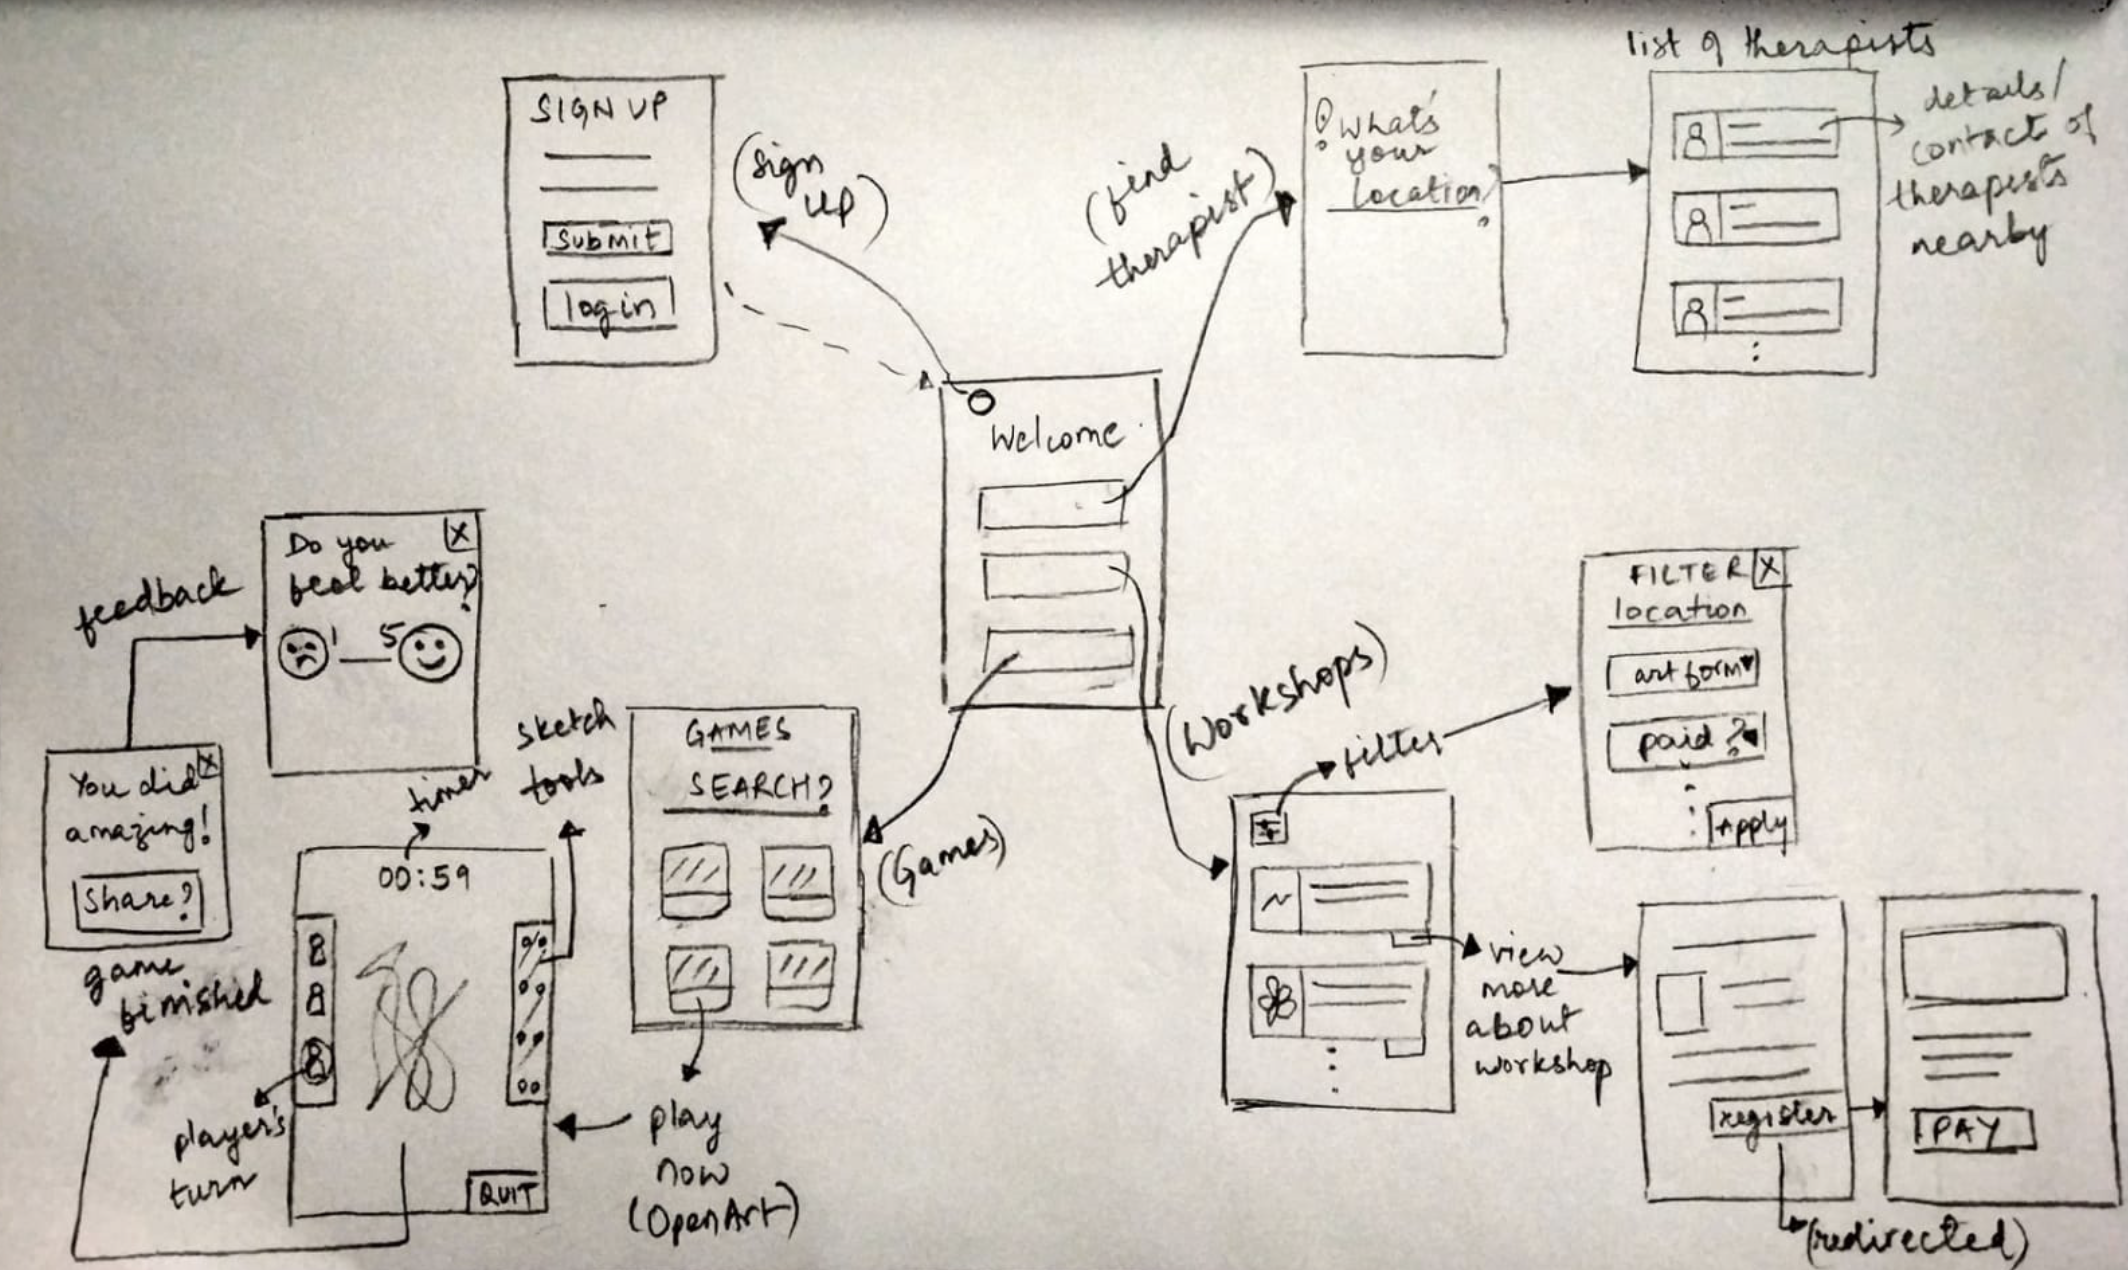 SIGN UP
submit
login
(sign
up)
(find
therapist)
What's
your
location?
list of therapists
details/
contact of
therapists
nearby
Welcome
Do you
feel better?
1
5
X
feedback
You did
amazing!
X
Share?
game
finished
timer
00:59
sketch
tools
player's
turn
QUIT
GAMES
SEARCH?
(Games)
play
now
(OpenArt)
(Workshops)
filter
FILTER
X
location
art form
paid?
Apply
view
more
about
workshop
register
(redirected)
PAY